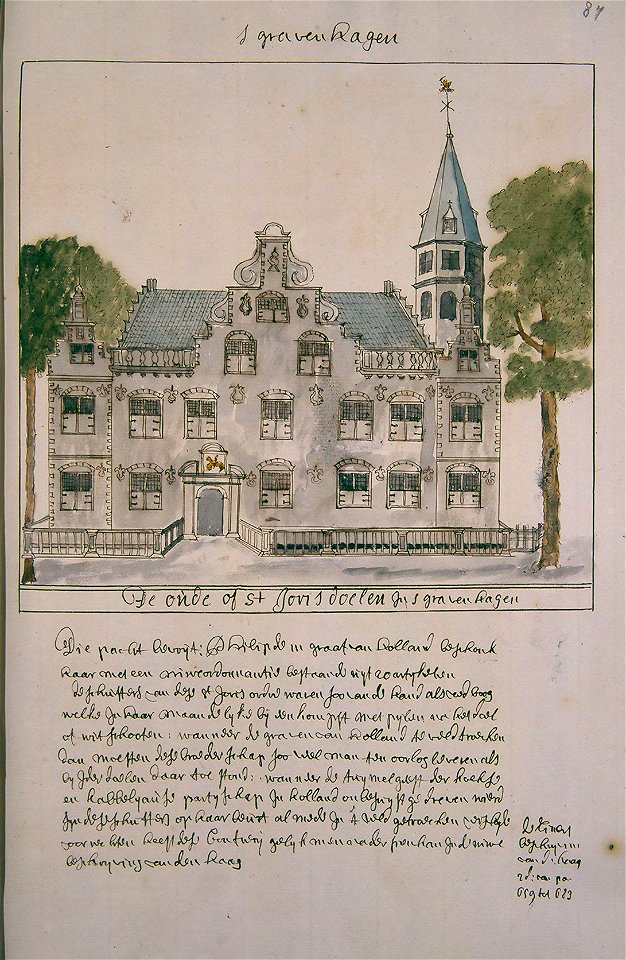 87
s gravenhagen
De oude of St Joris doelen in s gravenhagen
Die pacht Philip de III graaf van Holland beschonk
haar met een ordonnantie bestaande uyt 20 artykelen
de schutters van dese St Joris ordre waren soo van de hand als voet boog
welke in haar maandelyke by een komst met pylen na het doel
of wit schooten: wanneer de graven van Holland te veld trocken
dan moesten dese broederschap soo wel man ten oorlog leveren als
by doelen daar toe stond: wanneer de twymelgeest der hoekse
en kabbelyause partyschap in Holland gedreven wierd
syn dese schutters op haar beurt al mede in 't veld getrocken
heeft dese gelyk men nader sien kan in de niuwe
beschryving van den haag
beschryvin
van d: haag
2 d: van pa
659 tot 683